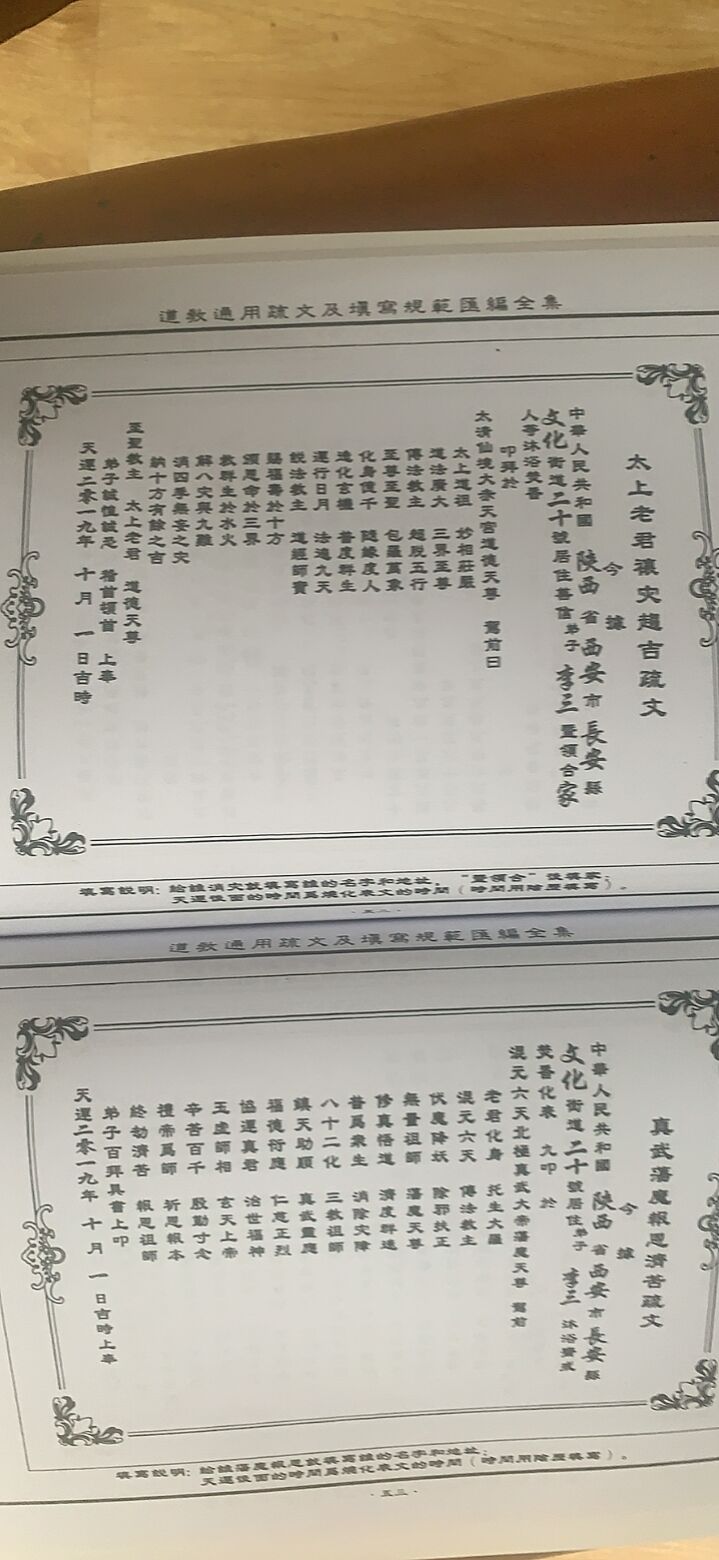 道教通用疏文及填寫規範匯編全集
太上老君禳灾趨吉疏文
今據
中華人民共和國 陝西 省 西安 市 長安 縣
文化 街道 二十 號居住善信弟子 李三 暨領合家
人等沐浴焚香
叩拜於
太清仙境大赤天宫道德天尊 駕前曰
太上道祖 妙相莊嚴
道法廣大 三界至尊
傳法教主 超脱五行
至尊至聖 包羅萬象
化身億千 隨緣度人
造化玄機 普度群生
運行日月 法遶九天
説法教主 道經師寶
賜福壽於十方
頒恩命於三界
救群生於水火
解八灾與九難
消四季無妄之灾
納十方有餘之吉
至聖教主 太上老君 道德天尊
弟子誠惶誠恐 稽首頓首 上奉
天運二零一九年 十月 一日吉時
填寫説明：給誰消灾就填寫誰的名字和地址，“暨領合”後填家；
天運後面的時間爲燒化表文的時間（時間用陰曆填寫）。
道教通用疏文及填寫規範匯編全集
真武蕩魔報恩濟苦疏文
今據
中華人民共和國 陝西 省 西安 市 長安 縣
文化 街道 二十 號居住弟子 李三 沐浴齋戒
焚香化表 九叩 於
混元六天北極真武大帝蕩魔天尊 駕前
老君化身 托生大羅
混元六天 傳法教主
伏魔降妖 除邪扶正
無量祖師 蕩魔天尊
修真悟道 濟度群迷
普爲衆生 消除灾障
八十二化 三教祖師
鎮天助順 真武靈應
福德衍慶 仁慈正烈
協運真君 治世福神
玉虚師相 玄天上帝
辛苦百千 殷勤寸念
禮帝爲師 祈恩報本
終劫濟苦 報恩祖師
弟子百拜具書上叩
天運二零一九年 十月 一日吉時上奉
填寫説明：給誰蕩魔報恩就填寫誰的名字和地址；
天運後面的時間爲燒化表文的時間（時間用陰曆填寫）。
·五三·